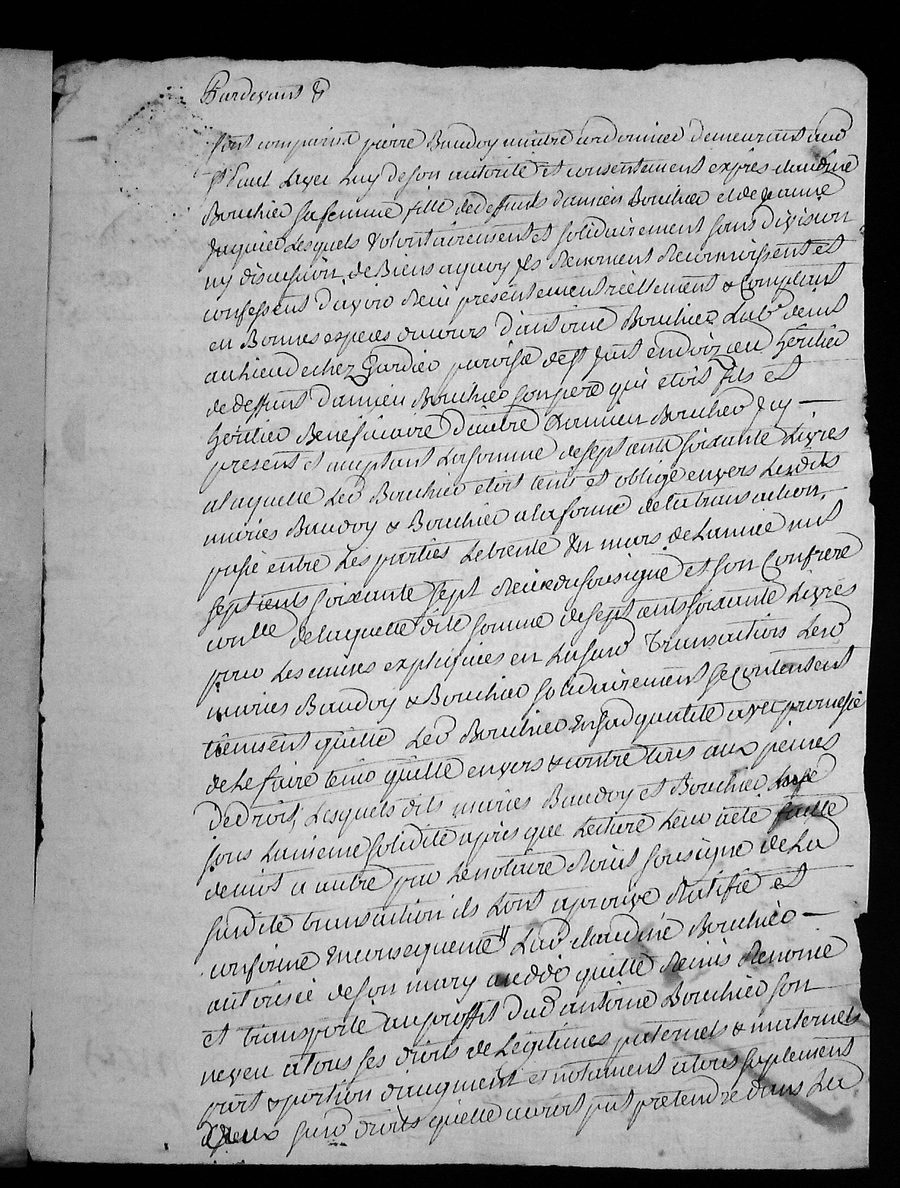 Pardevant &
sont comparus pierre Baudoy maitre cordonnier demeurant au
St Paul Layer Luy de son autorité et consentement expres claudine
Bouchier sa femme fille de deffunts damien Bouchier et de jeanne
Jaquier Lesquels volontairement et solidairement sans division
ny discussion de Biens a quoy ils Renoncent Reconnoissent et
confessent d'avoir Reçu presentement réellement & Comptant
en Bonnes especes du cours d'antoine Bouchier Labr demt
au lieu de chez Gardier paroisse de st just en doizieu héritier
de deffunt damien Bouchier son pere qui étoit fils et
héritier Beneficiaire d'autre damien Bouchier Icy
present et acceptant La somme de sept cents soixante Livres
a laquelle Led Bouchier étoit tenu et obligé envers Lesdits
mariés Baudoy & Bouchier a la forme de la transaction
passé entre Les parties Le trente un mars de L'année mil
sept cents soixante sept Reçue du sousigné et son Confrere
controllé de laquelle dite somme de sept cents soixante Livres
pour Les causes expliquées en La susd Transaction Lesd
mariés Baudoy & Bouchier solidairement se contentent
tiennent quitte Led Bouchier En sad qualité avec promesse
de Le faire tenir quitte envers & contre tous aux peines
de droit, Lesquels dits mariés Baudoy et Bouchier
sous La meme solidité après que Lecture Leur a été faitte
de mot a autre par Le notaire Roial sousigné de La
susdite transaction ils L'ont aprouvé Ratifié et
confirmé En consequence Lad claudine Bouchier
autorisée de son mary a cédé quitté Remis Renoncé
et transporté au proffit dud antoine Bouchier son
neveu a tous ses droits de Legitimes paternels & maternels
part & portion d'augment et notament a tous suplement
d'Iceux susd droits qu'elle auroit put pretendre dans La